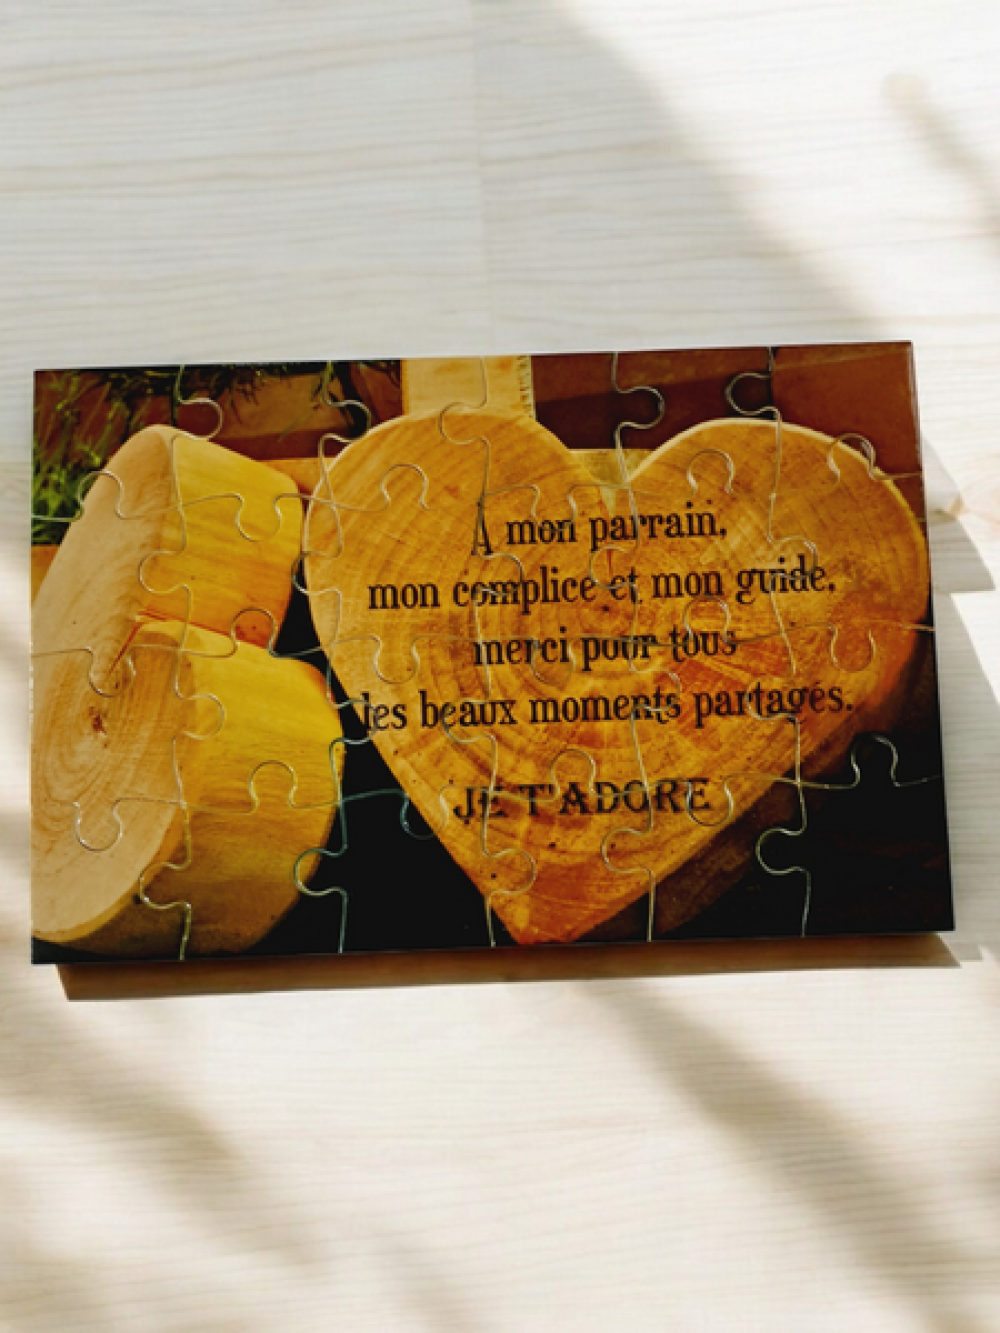 À mon parrain,
mon complice et mon guide.
merci pour tous
les beaux moments partagés.
JE T'ADORE